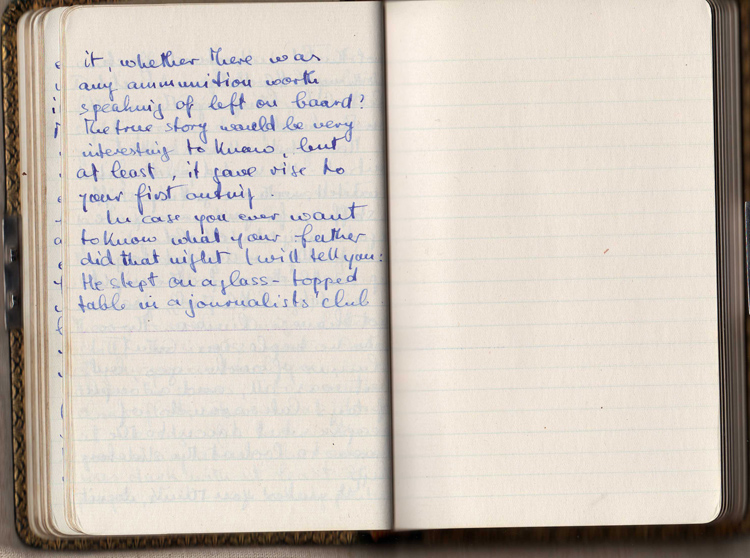 it, whether there was
any ammunition worth
speaking of left on board?
The true story would be very
interesting to know, but
at least, it gave rise to
your first outing.
In case you ever want
to know what your father
did that night I will tell you:
He slept on a glass-topped
table in a journalists' club.